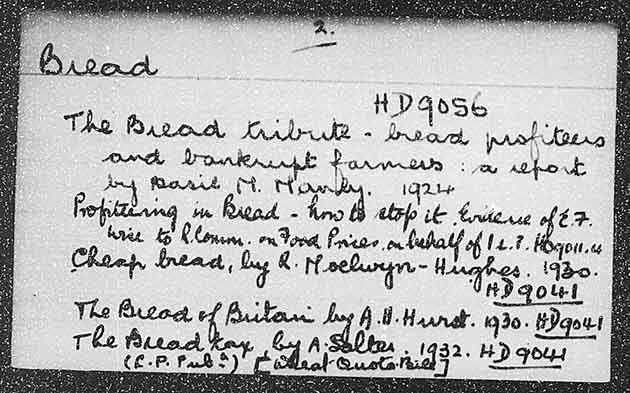 2.
Bread
HD9056
The Bread tribute - bread profiteers
and bankrupt farmers : a report
by Basil M. Manly. 1924
Profiteering in Bread - how to stop it Evidence of E.F.
Wise to R. Comm. on Food Prices on behalf of I.L.P. HD9011.
Cheap bread, by R. Moelwyn-Hughes. 1930.
HD9041
The Bread of Britain by A.H. Hurst. 1930. HD9041
The Bread tax by A. Salter. 1932. HD9041
(L.P. Pubn.) [Wheat Quota Bill]